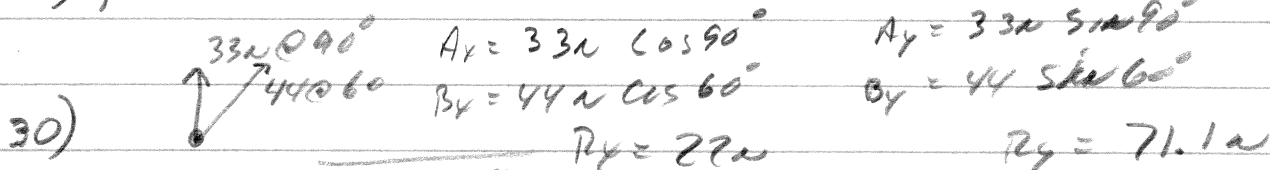 33n@90° Ax = 33n Cos90° Ay = 33n Sin90°
44@60 Bx = 44n Cos60° By = 44 Sin60°
30) Rx = 22n Ry = 71.1n